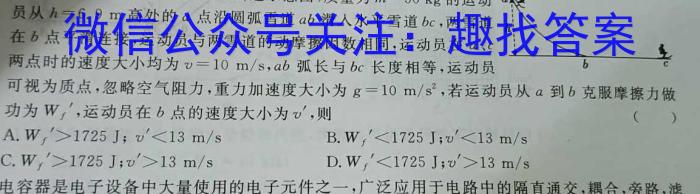 kg 的运动
员从 h=6.0 m 高处的 a 点沿圆弧雪道 ab 滑入水平雪道 bc,两雪道
在 b 点 连接,运动员与两雪道的动摩擦因数相同,运动员
微信公众号关注:趣找答案
两点时的速度大小均为 v=10 m/s,ab 弧长与 bc 长度相等,运动员
b c
可视为质点,忽略空气阻力,重力加速度大小为 g=10 m/s²,若运动员从 a 到 b 克服摩擦力做
功为 Wf′,运动员在 b 点的速度大小为 v′,则 ( )
A. Wf′>1725 J; v′<13 m/s B. Wf′<1725 J;v′<13 m/s
C. Wf′>1725 J;v′>13 m/s D. Wf′<1725 J;v′>13 m/s
电容器是电子设备中大量使用的电子元件之一,广泛应用于电路中的隔直通交,耦合,旁路,滤